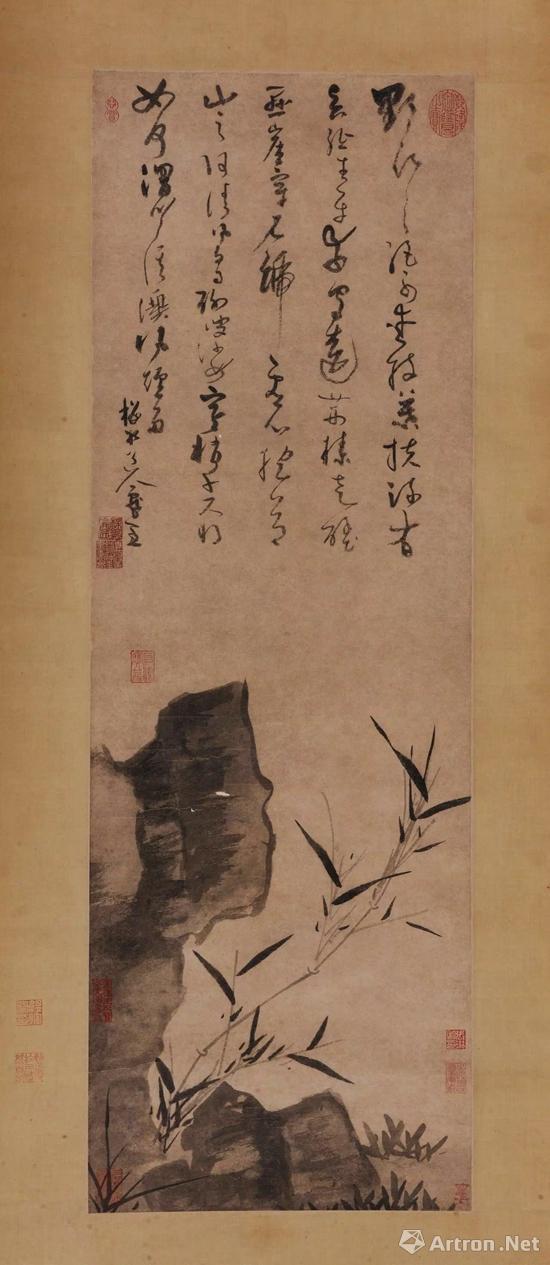 野竹野竹絕可愛枝葉扶疏有
真態生平素守遠荊榛走壁
懸崖穿石罅虛心抱節
山之阿清風白月聊婆娑寒梢千尺將
如何渭川淇澳風煙多
梅花道人戲墨
Artron.Net